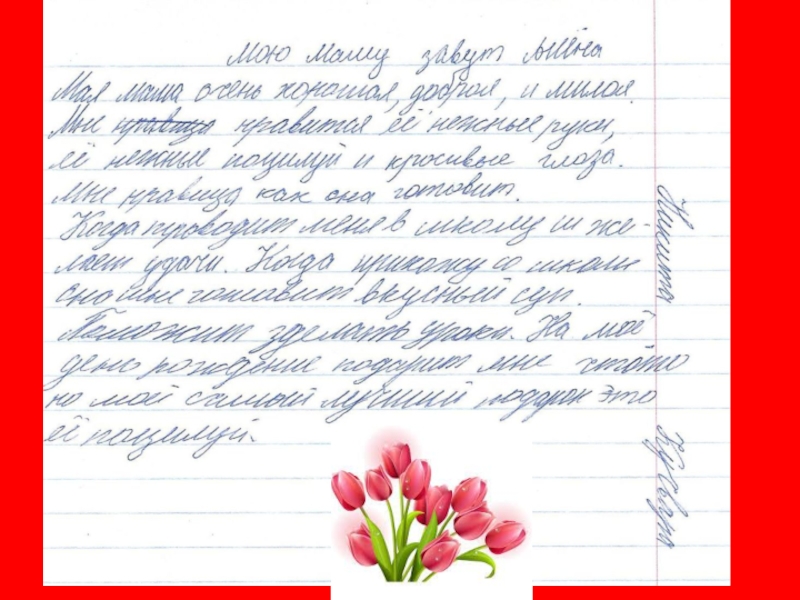 Мою маму завут Алёна
Мая мама очень хорошая, добрая, и милая.
Мне нравица нравится её нежные руки,
её нежные поцилуй и красивые глаза.
Мне нравица как она готовит.
Когда проводит меня в школу и же-
лает удачи. Когда прихожу со школы
она мне готовит вкусный суп.
Поможит зделать уроки. На моё
день рождение подарит мне что-то
но мой самый лучший подарок это
её поцилуй.
Никита